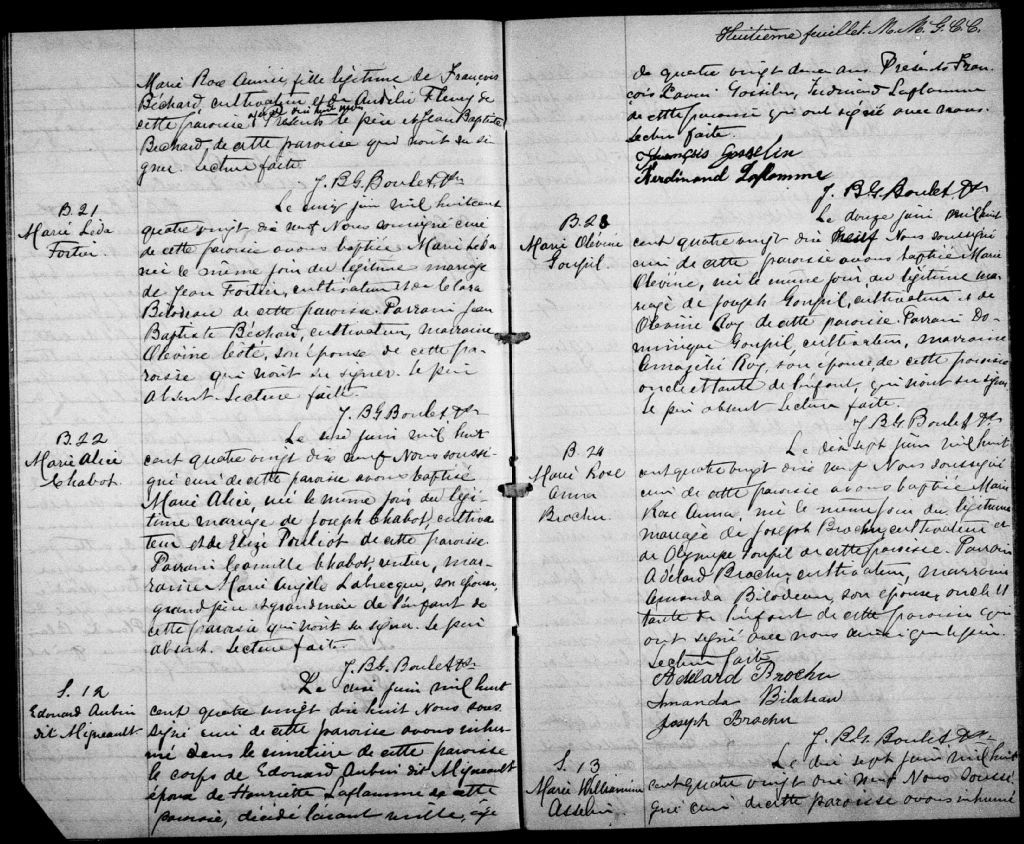 Marie Rose Annie, fille légitime de François
Béchard, cultivateur et de Aurélie Fleury de
cette paroisse. Présents le père et Jean Baptiste
Bechard, de cette paroisse qui n'ont su si-
gner. Lecture faite.
J. B. G. Boulet, Ptre
B. 21
Marie Léda
Fortier.
Le onze juin mil huit cent
quatre vingt dix neuf Nous soussigné curé
de cette paroisse avons baptisé Marie Léda
née le même jour du légitime mariage
de Jean Fortier, cultivateur et de Clara
Bilodeau de cette paroisse. Parrain Jean
Baptiste Béchard, cultivateur, marraine
Olevine Côté, son épouse de cette pa-
roisse qui n'ont su signer. Le père
absent. Lecture faite.
J. B. G. Boulet, Ptre
B. 22
Marie Alice
Chabot.
Le juin mil huit
cent quatre vingt dix neuf Nous soussi-
gné curé de cette paroisse avons baptisé
Marie Alice, née le même jour du légi-
time mariage de Joseph Chabot, cultiva-
teur et de Eliza Pouliot de cette paroisse.
Parrain Camille Chabot, rentier, mar-
raine Marie Angèle Labrecque, son épouse,
grand père et grand mère de l'enfant de
cette paroisse qui n'ont su signer. Le père
absent. Lecture faite.
J. B. G. Boulet, Ptre
S. 12
Edouard Aubin
dit Migneault
Le dix juin mil huit
cent quatre vingt dix huit Nous sous
signé curé de cette paroisse avons inhu-
mé dans le cimetière de cette paroisse
le corps de Edouard Aubin dit Migneault
époux de Henriette Laflamme de cette
paroisse, décédé l'avant veille, âgé
Huitième feuillet. M. M. G. C. C.
de quatre vingt deux ans. Présents Fran-
çois Xavier Gosselin, Ferdinand Laflamme
de cette paroisse qui ont signé avec nous.
Lecture faite.
François Gosselin
Ferdinand Laflamme
J. B. G. Boulet, Ptre
B. 23
Marie Olévine
Goupil.
Le douze juin mil huit
cent quatre vingt dix neuf Nous soussigné
curé de cette paroisse avons baptisé Marie
Olévine, née le même jour du légitime ma-
riage de Joseph Goupil, cultivateur et de
Olévine Roy de cette paroisse. Parrain Do-
minique Goupil cultivateur, marraine
Roy, son épouse, de cette paroisse
oncle et tante de l'enfant, qui n'ont su signer.
Le père absent Lecture faite.
J. B. G. Boulet, Ptre
B. 24
Marie Rose
Anna
Brochu
Le dix sept juin mil huit
cent quatre vingt dix neuf Nous soussigné
curé de cette paroisse avons baptisé Marie
Rose Anna, née le même jour du légitime
mariage de Joseph Brochu, cultivateur et
de Olympe Goupil de cette paroisse. Parrain
Adélard Brochu, cultivateur, marraine
Amanda Bilodeau, son épouse, oncle et
tante de l'enfant de cette paroisse qui
ont signé avec nous ainsi que le père.
Lecture faite
Adélard Brochu
Amanda Bilodeau
Joseph Brochu
J. B. G. Boulet, Ptre
S. 13
Marie Williamine
Asselin.
Le dix sept juin mil huit
cent quatre vingt dix neuf Nous soussi-
gné curé de cette paroisse avons inhumé